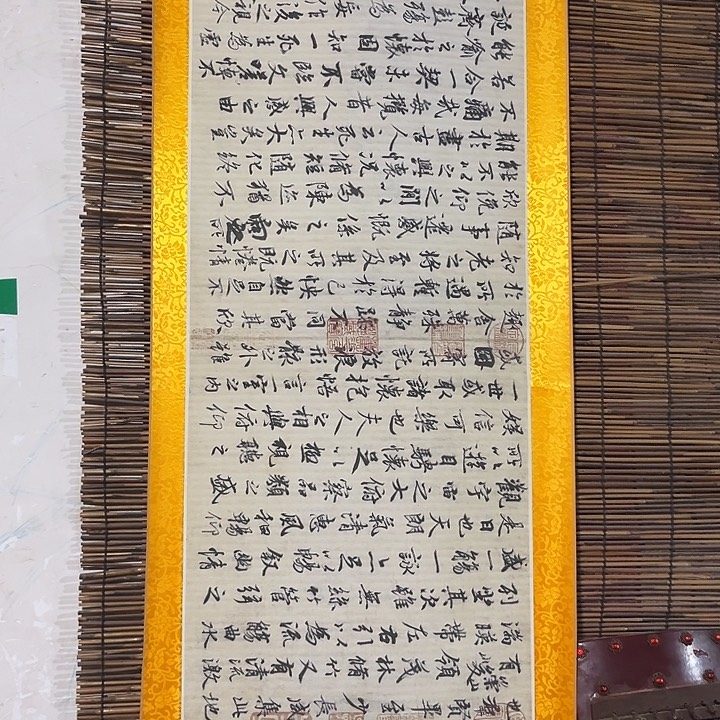 也羣賢畢至少長咸集此地
有崇山峻領茂林脩竹又有清流激
湍暎帶左右引以為流觴曲水
列坐其次雖無絲竹管弦之
盛一觴一詠亦足以暢敘幽情
是日也天朗氣清惠風和暢仰
觀宇宙之大俯察品類之盛
所以遊目騁懷足以極視聽之
娛信可樂也夫人之相與俯仰
一世或取諸懷抱悟言一室之內
或因寄所託放浪形骸之外雖
趣舍萬殊靜躁不同當其欣
於所遇暫得於己快然自足不
知老之將至及其所之既惓情
隨事遷感慨係之矣向之所
欣俛仰之閒以為陳迹猶不
能不以之興懷況脩短隨化終
期於盡古人云死生亦大矣豈
不痛哉每攬昔人興感之由
若合一契未嘗不臨文嗟悼不
能喻之於懷固知一死生為虛
誕齊彭殤為妄作後之視今